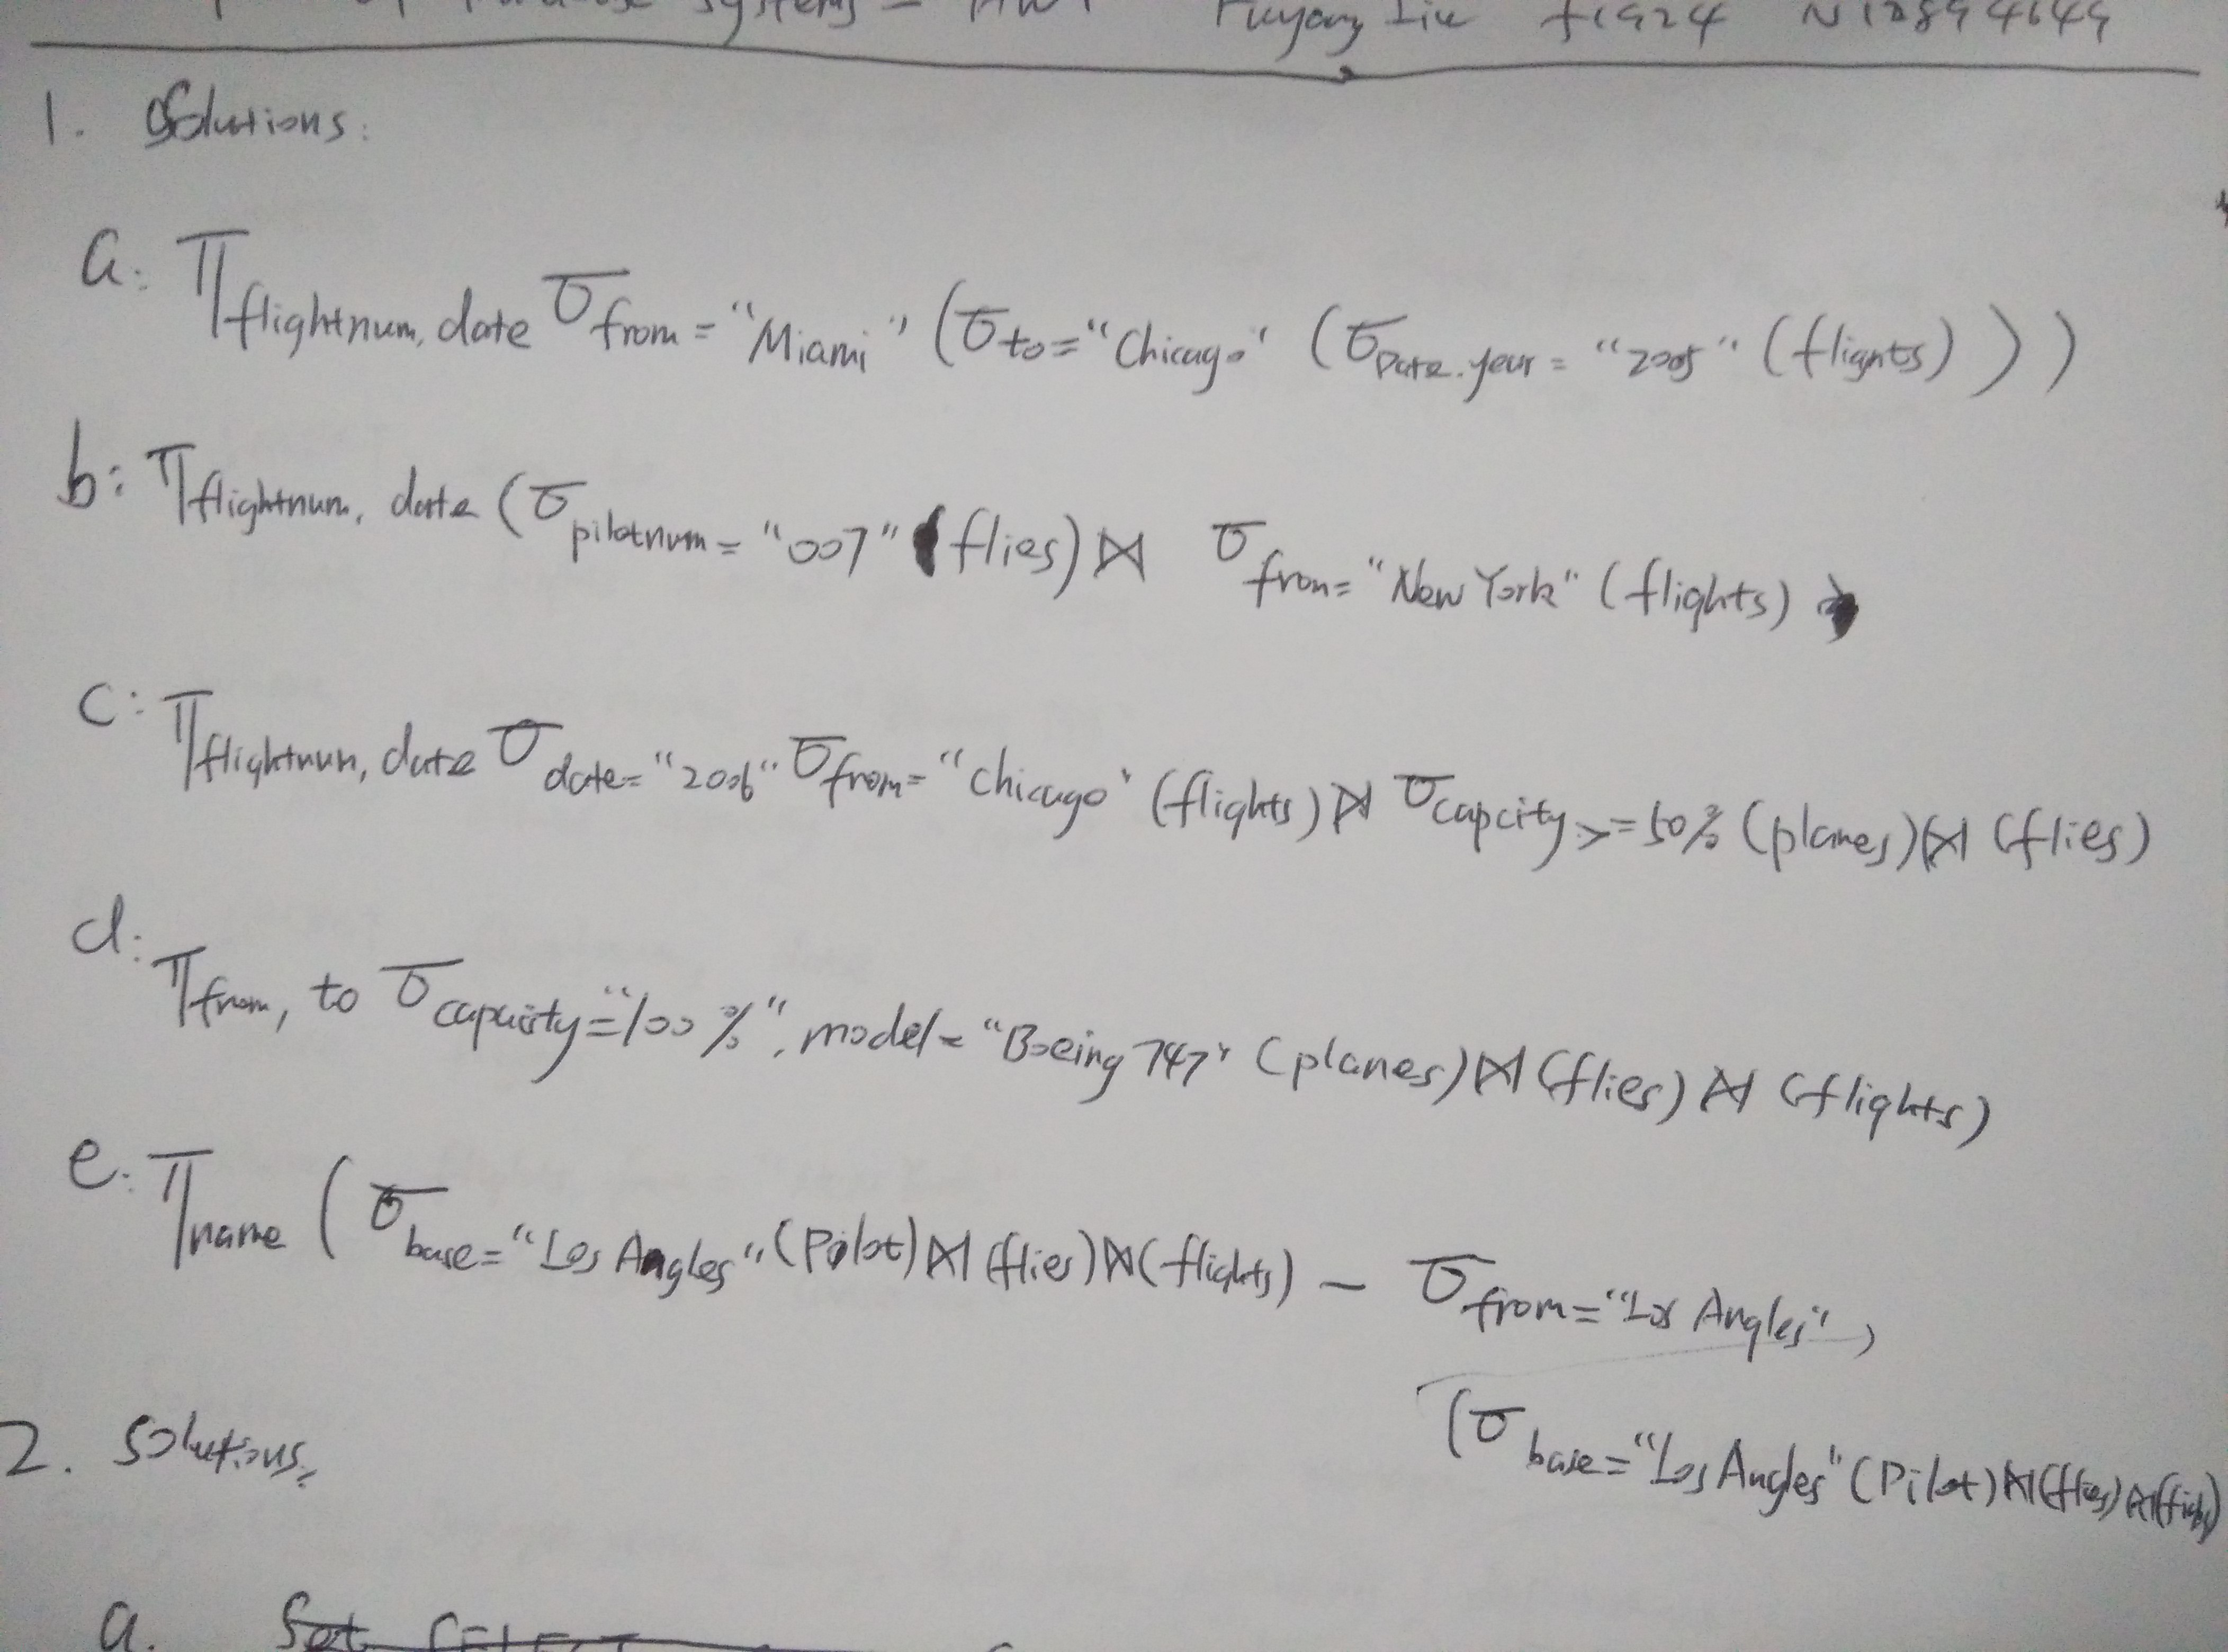 Systems - HW1 Fuyong Liu fl924 N12894649
1. Solutions:
a: π flightnum, date σ from = "Miami" (σ to = "Chicago" (σ Date.year = "2005" (flights) ) )
b: π flightnum, date (σ pilotnum = "007" (flies) ⋈ σ from = "New York" (flights)
c: π flightnum, date σ date = "2006" σ from = "Chicago" (flights) ⋈ σ capcity >= 50% (planes) ⋈ (flies)
d: π from, to σ capacity = "100%", model = "Boeing 747" (planes) ⋈ (flies) ⋈ (flights)
e. π name ( σ base = "Los Angles" (Pilot) ⋈ (flies) ⋈ (flights) − σ from = "Los Angles",
(σ base = "Los Angles" (Pilot) ⋈ (flies) ⋈
2. Solutions:
a. Set SELECT